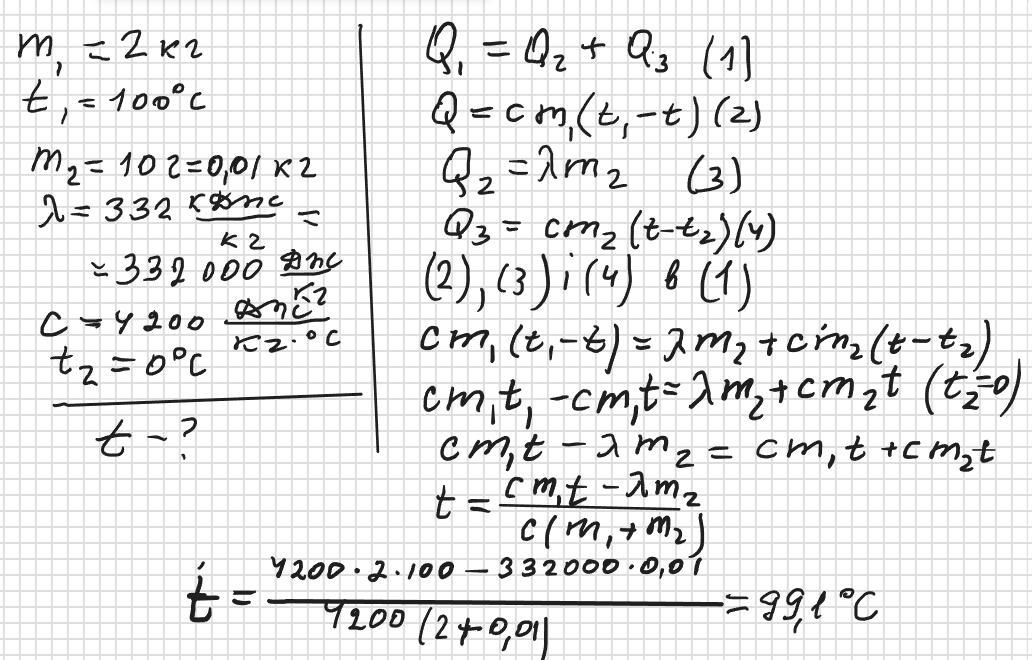 m₁ = 2 кг
t₁ = 100°C
m₂ = 10г = 0,01 кг
λ = 332 кДж/кг =
= 332 000 Дж/кг
c = 4200 Дж/кг·°C
t₂ = 0°C
t - ?
Q₁ = Q₂ + Q₃ (1)
Q = cm₁(t₁ - t) (2)
Q₂ = λm₂ (3)
Q₃ = cm₂(t - t₂) (4)
(2), (3) і (4) в (1)
cm₁(t₁ - t) = λm₂ + cm₂(t - t₂)
cm₁t₁ - cm₁t = λm₂ + cm₂t (t₂ = 0)
cm₁t - λm₂ = cm₁t + cm₂t
t = cm₁t - λm₂ / c(m₁ + m₂)
t = 4200·2·100 - 332000·0,01 / 4200(2 + 0,01) = 99,1°C